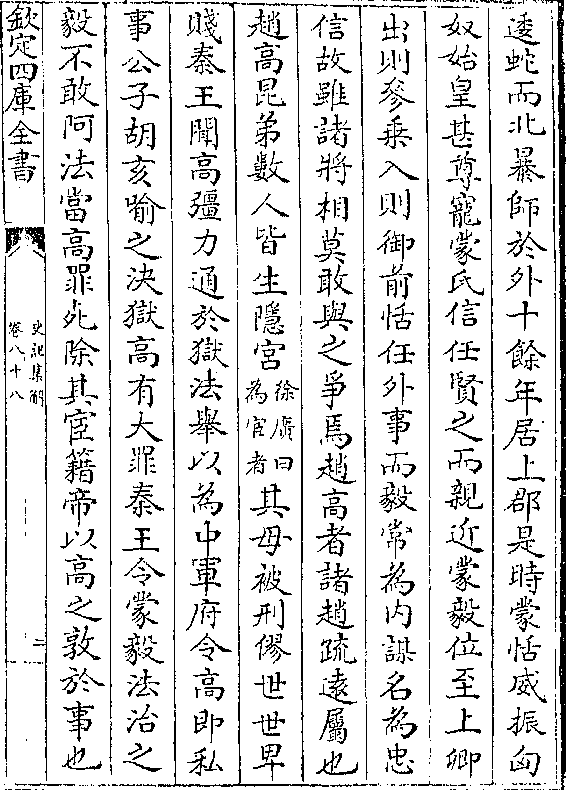 逶蛇而北暴師於外十餘年居上郡是時蒙恬威振匈
奴始皇甚尊寵蒙氏信任賢之而親近蒙毅位至上卿
出則參乗入則御前恬任外事而毅常為内謀名為忠
信故雖諸將相莫敢與之爭焉趙髙者諸趙疏逺屬也
趙髙昆弟數人皆生隱宫徐廣曰為宦者其母被刑僇世世卑
賤秦王聞髙彊力通於獄法舉以為中軍府令髙即私
事公子胡亥喻之決獄髙有大罪秦王令蒙毅法治之
毅不敢阿法當髙罪死除其宦籍帝以髙之敦於事也
欽定四庫全書
史記集解
卷八十八
二